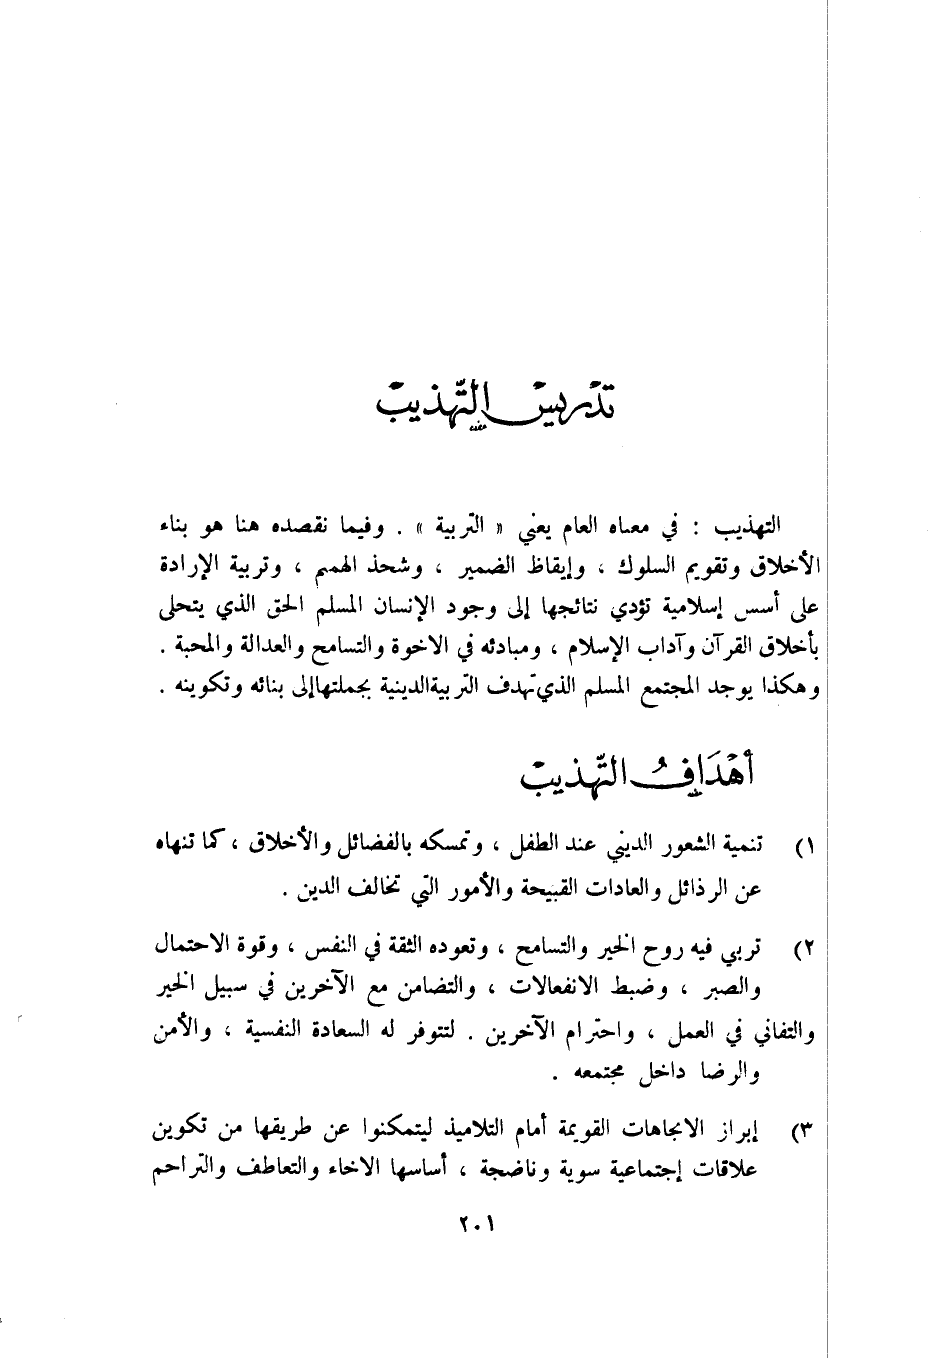 تدريس التهذيب
التهذيب : في معناه العام يعني « التربية » . وفيما نقصده هنا هو بناء
الأخلاق وتقويم السلوك ، وإيقاظ الضمير ، وشحذ الهمم ، وتربية الإرادة
على أسس إسلامية تؤدي نتائجها إلى وجود الإنسان المسلم الحق الذي يتحلى
بأخلاق القرآن وآداب الإسلام ، ومبادئه في الاخوة والتسامح والعدالة والمحبة .
وهكذا يوجد المجتمع المسلم الذي تهدف التربية الدينية بجملتها إلى بنائه وتكوينه .
أهداف التهذيب
١) تنمية الشعور الديني عند الطفل ، وتمسكه بالفضائل والأخلاق ، كما تنهاه
عن الرذائل والعادات القبيحة والأمور التي تخالف الدين .
٢) تربي فيه روح الخير والتسامح ، وتعوده الثقة في النفس ، وقوة الاحتمال
والصبر ، وضبط الانفعالات ، والتضامن مع الآخرين في سبيل الخير
والتفاني في العمل ، واحترام الآخرين . لتتوفر له السعادة النفسية ، والأمن
والرضا داخل مجتمعه .
٣) إبراز الاتجاهات القويمة أمام التلاميذ ليتمكنوا عن طريقها من تكوين
علاقات إجتماعية سوية وناضجة ، أساسها الاخاء والتعاطف والتراحم
٢٠١